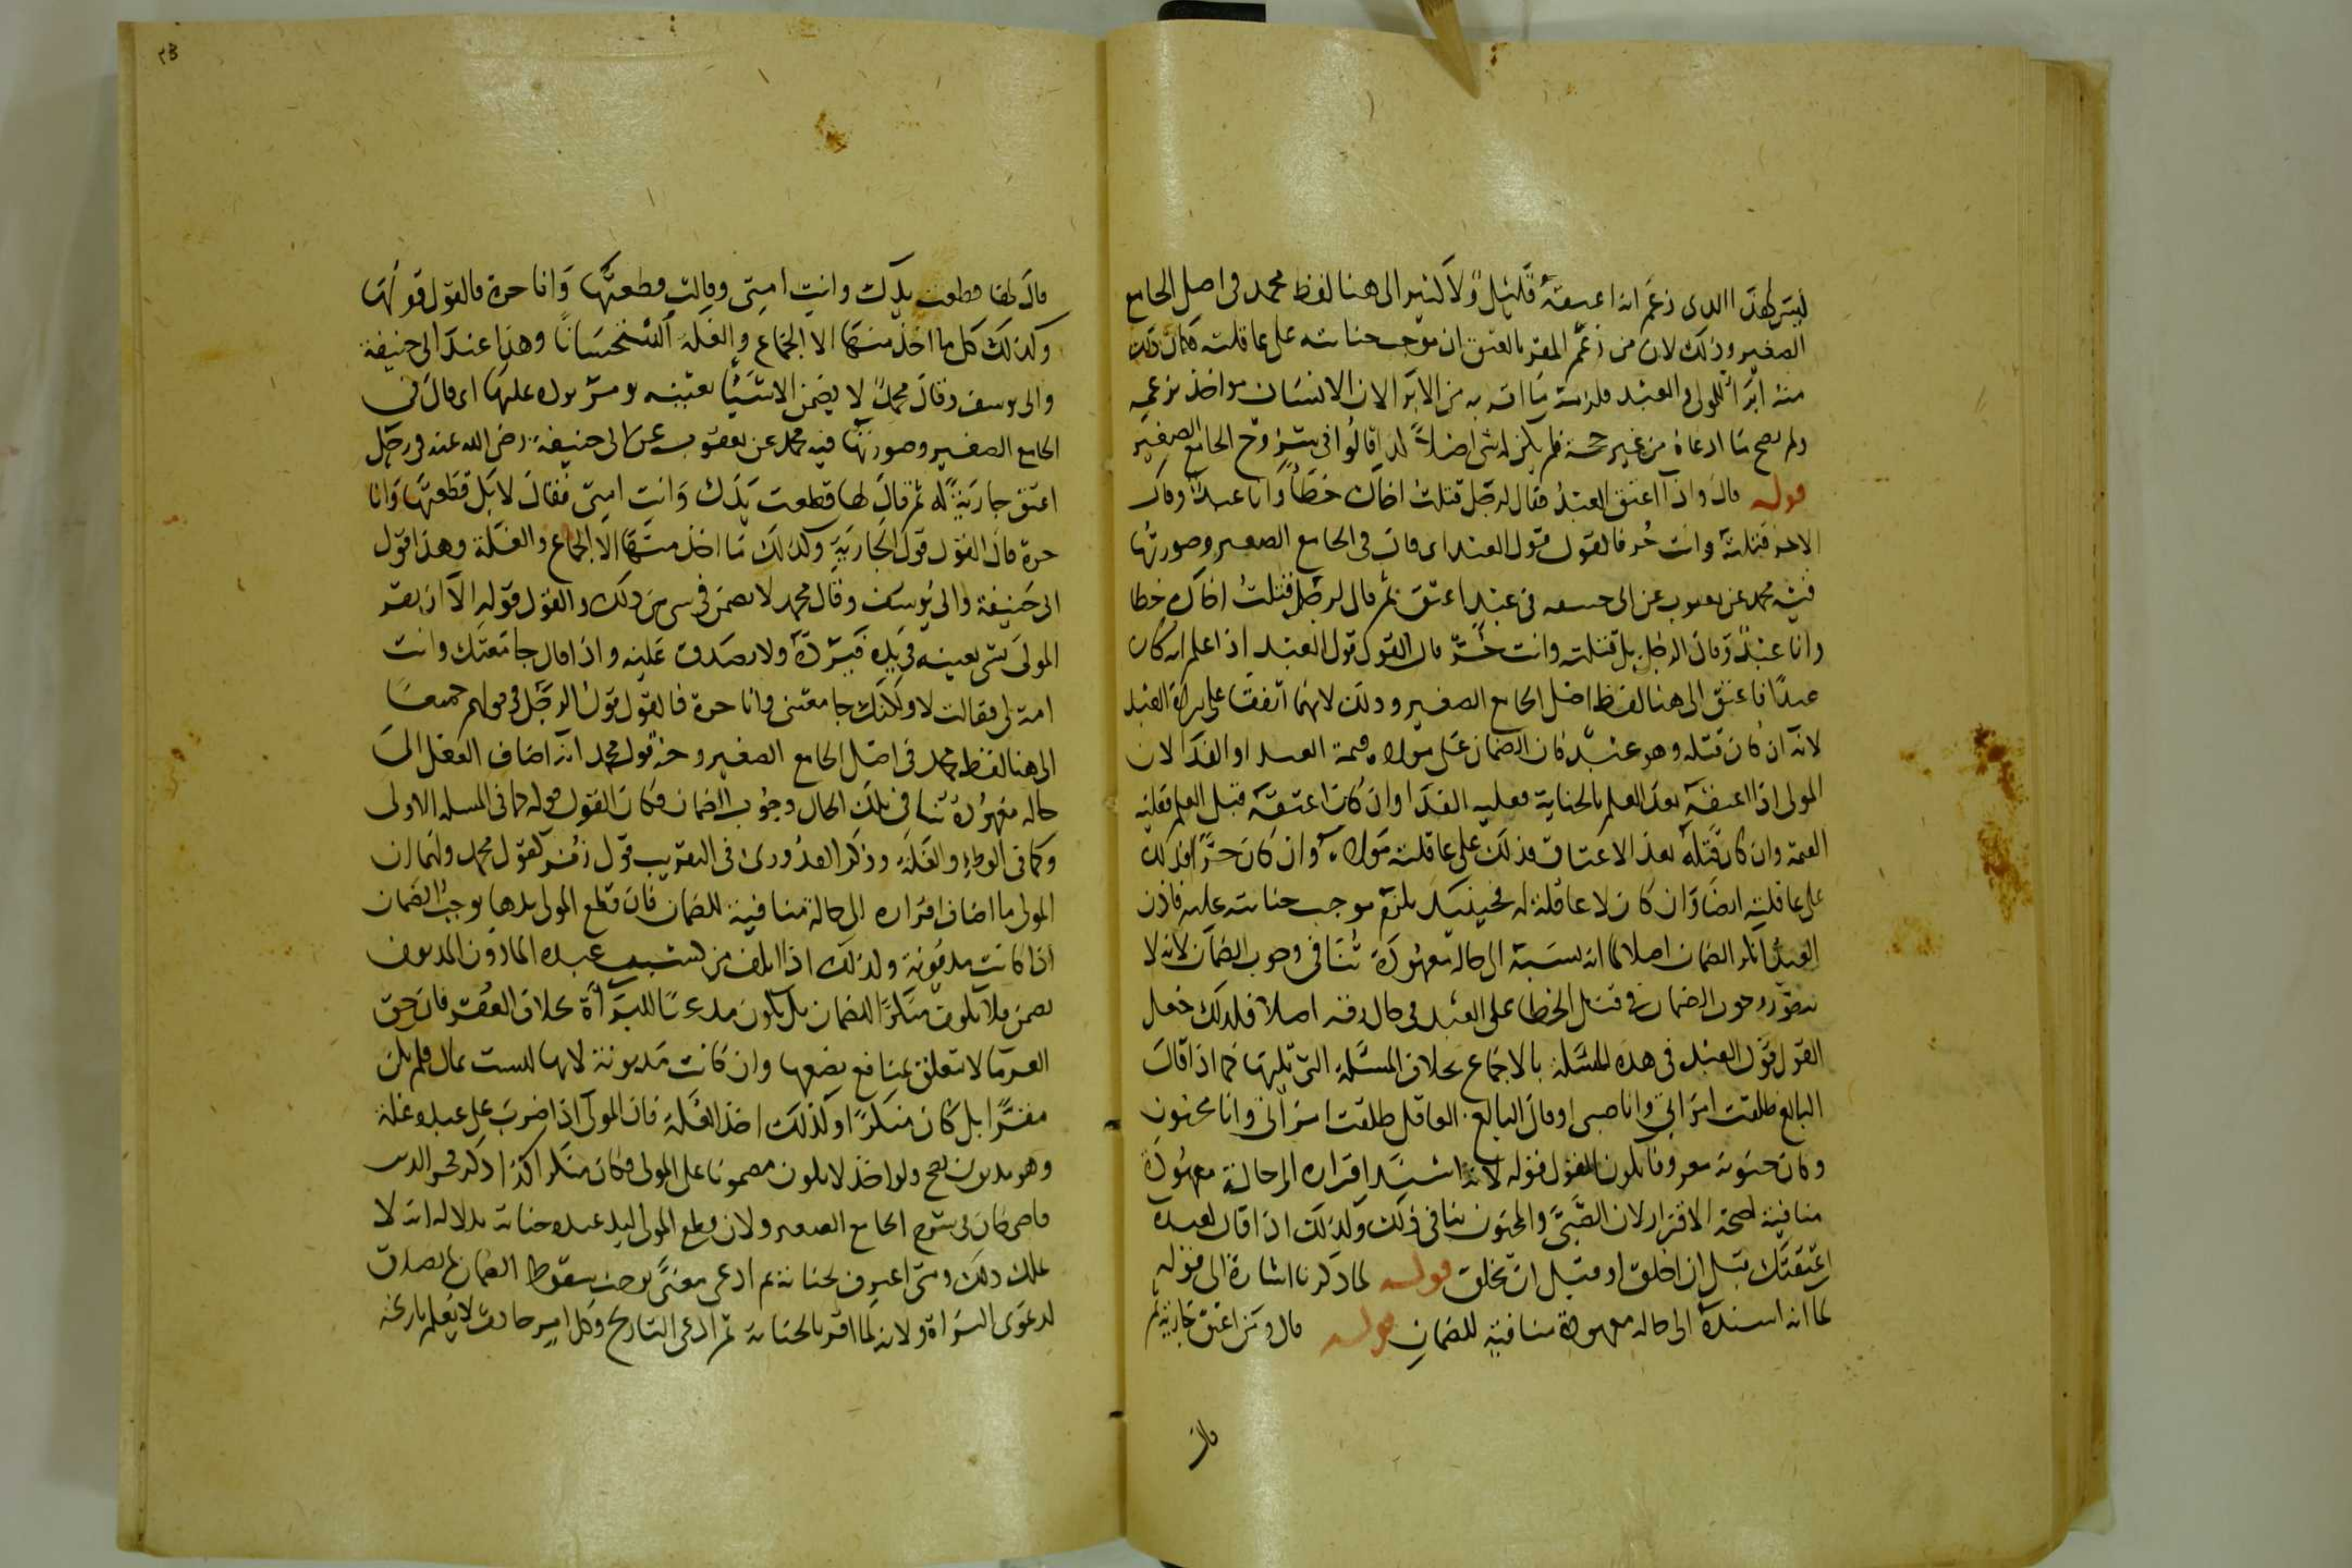 ليس لهذا الذى زعم انه اعتقه قليل ولا كثير الى هنا لفظ محمد فى اصل الجامع
الصغير وذلك لان من زعم المقر بالعتق ان موجب جنايته على عاقلته فكان ذلك
منه ابراء للمولى والعبد فلزمه ما اتى به من الابراء لان الانسان مواخذ بزعمه
ولم يصح ما ادعاه من غير حجة فلم يلزمه شى اصلا كذا قالوا فى شروح الجامع الصغير
قوله قال واذا اعتق العبد فقال لرجل قتلت اخاك خطأ وانا عبد وقال
الاخر قتلته وانت حر فالقول قول العبد اى قال فى الجامع الصغير وصورتها
فيه محمد عن يعقوب عن ابى حنيفة فى عبد اعتق ثم قال لرجل قتلت اخاك خطا
وانا عبد وقال الرجل بل قتلته وانت حر قال القول قول العبد اذا علم انه كان
عبدا فاعتق الى هنا لفظ اصل الجامع الصغير وذلك لانهما اتفقا على براة العبد
لانه ان كان قتله وهو عبد كان الضمان على مولاه قيمة العبد او الفدا لان
المولى اذا اعتقه بعد العلم بالجناية فعليه الفدا وان كان اعتقه قبل العلم فعليه
القيمة وان كان قتله بعد الاعتاق فذلك على عاقلته مولاه وان كان حرا فذلك
على عاقلته ايضا وان كان لا عاقلة له فحينئذ يلزمه موجب جنايته عليه فاذن
العبد انكر الضمان اصلا لما انه نسبه الى حالة معهودة تنافى وجوب الضمان لانه لا
يتصور وجوب الضمان فى قتل الخطا على العبد فى حال رقه اصلا فلذلك جعل
القول قول العبد فى هذه المسئلة بالاجماع بخلاف المسئلة التى تليها كما اذا قال
البالغ طلقت امراتى وانا صبى او قال البالغ العاقل طلقت امراتى وانا مجنون
وكان جنونه معروفا يكون القول قوله لانه اسند اقراره الى حالة معهودة
منافية لصحة الاقرار لان الصبى والجنون ينافى ذلك وكذلك اذا قال لعبده
اعتقتك قبل ان اخلق او قبل ان تخلق قوله لما ذكرنا اشارة الى قوله
لما انه اسنده الى حاله معهودة منافية للضمان قوله قال ومن اعتق جارية ثم
قال
٢٣
قال لها قطعت يدك وانت امتى وقالت قطعتها وانا حرة فالقول قولها
وكذلك كل ما اخذ منها الا الجماع والغلة استحسانا وهذا عند ابى حنيفة
وابى يوسف وقال محمد لا يضمن الا شيئا بعينه يومر برده عليها اى قال فى
الجامع الصغير وصورتها فيه محمد عن يعقوب عن ابى حنيفة رضى الله عنه فى رجل
اعتق جارية له ثم قال لها قطعت يدك وانت امتى فقال لا بل قطعتها وانا
حرة قال القول قول الجارية وكذلك ما اخذ منها الا الجماع والغلة وهذا قول
ابى حنيفة وابى يوسف وقال محمد لا يضمن فى شى من ذلك والقول قوله الا ان يقر
المولى بشى بعينه فى يده فيرده ولا يصدق عليه واذا قال جامعتك وانت
امة لى فقالت لا ولكنك جامعتنى وانا حرة فالقول قول الرجل فى قولهم جميعا
الى هنا لفظ محمد فى اصل الجامع الصغير وجه قول محمد انه اضاف الفعل الى
حاله معهودة تنافى تلك الحال وجوب الضمان فكان القول قوله كما فى المسله الاولى
وكما فى الوطء والغلة وذكر القدورى فى التقريب قول زفر كقول محمد ولهما ان
المولى ما اضاف اقراره الى حالة منافية للضمان فان قطع المولى يدها يوجب الضمان
اذا كانت مديونة وكذلك اذا اتلف من كسب عبده الماذون المديون
يضمن فلا يكون منكرا للضمان بل يكون مدعيا للبراة بخلاف العقر فان حق
الغرما لا يتعلق بمنافع بضعها وان كانت مديونة لانها ليست بمال فلم يكن
مقرا بل كان منكرا وكذلك اخذ الغلة فان المولى اذا ضرب على عبده غلة
وهو مديون يصح ولو اخذ لا يكون مضمونا على المولى فكان منكرا كذا ذكر فخر الدين
قاضى خان فى شرح الجامع الصغير ولان قطع المولى ليد عبده جناية بدلاله انه لا
يملك ذلك ومتى اعترف بجناية ثم ادعى معنى يوجب سقوط الضمان لم يصدق
لدعوى البراة ولانه لما اقر بالجناية ثم ادعى التاريخ وكل امر حادث لا يعلم تاريخه